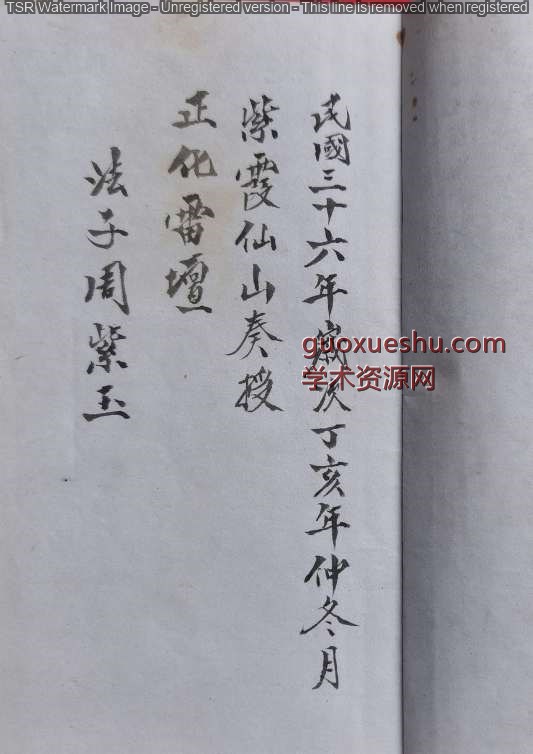 TSR Watermark Image - Unregistered version - This line is removed when registered
民國三十六年歲次丁亥年仲冬月
紫霞仙山奏授
正化雷壇
法子周紫玉
guoxueshu.com
学术资源网